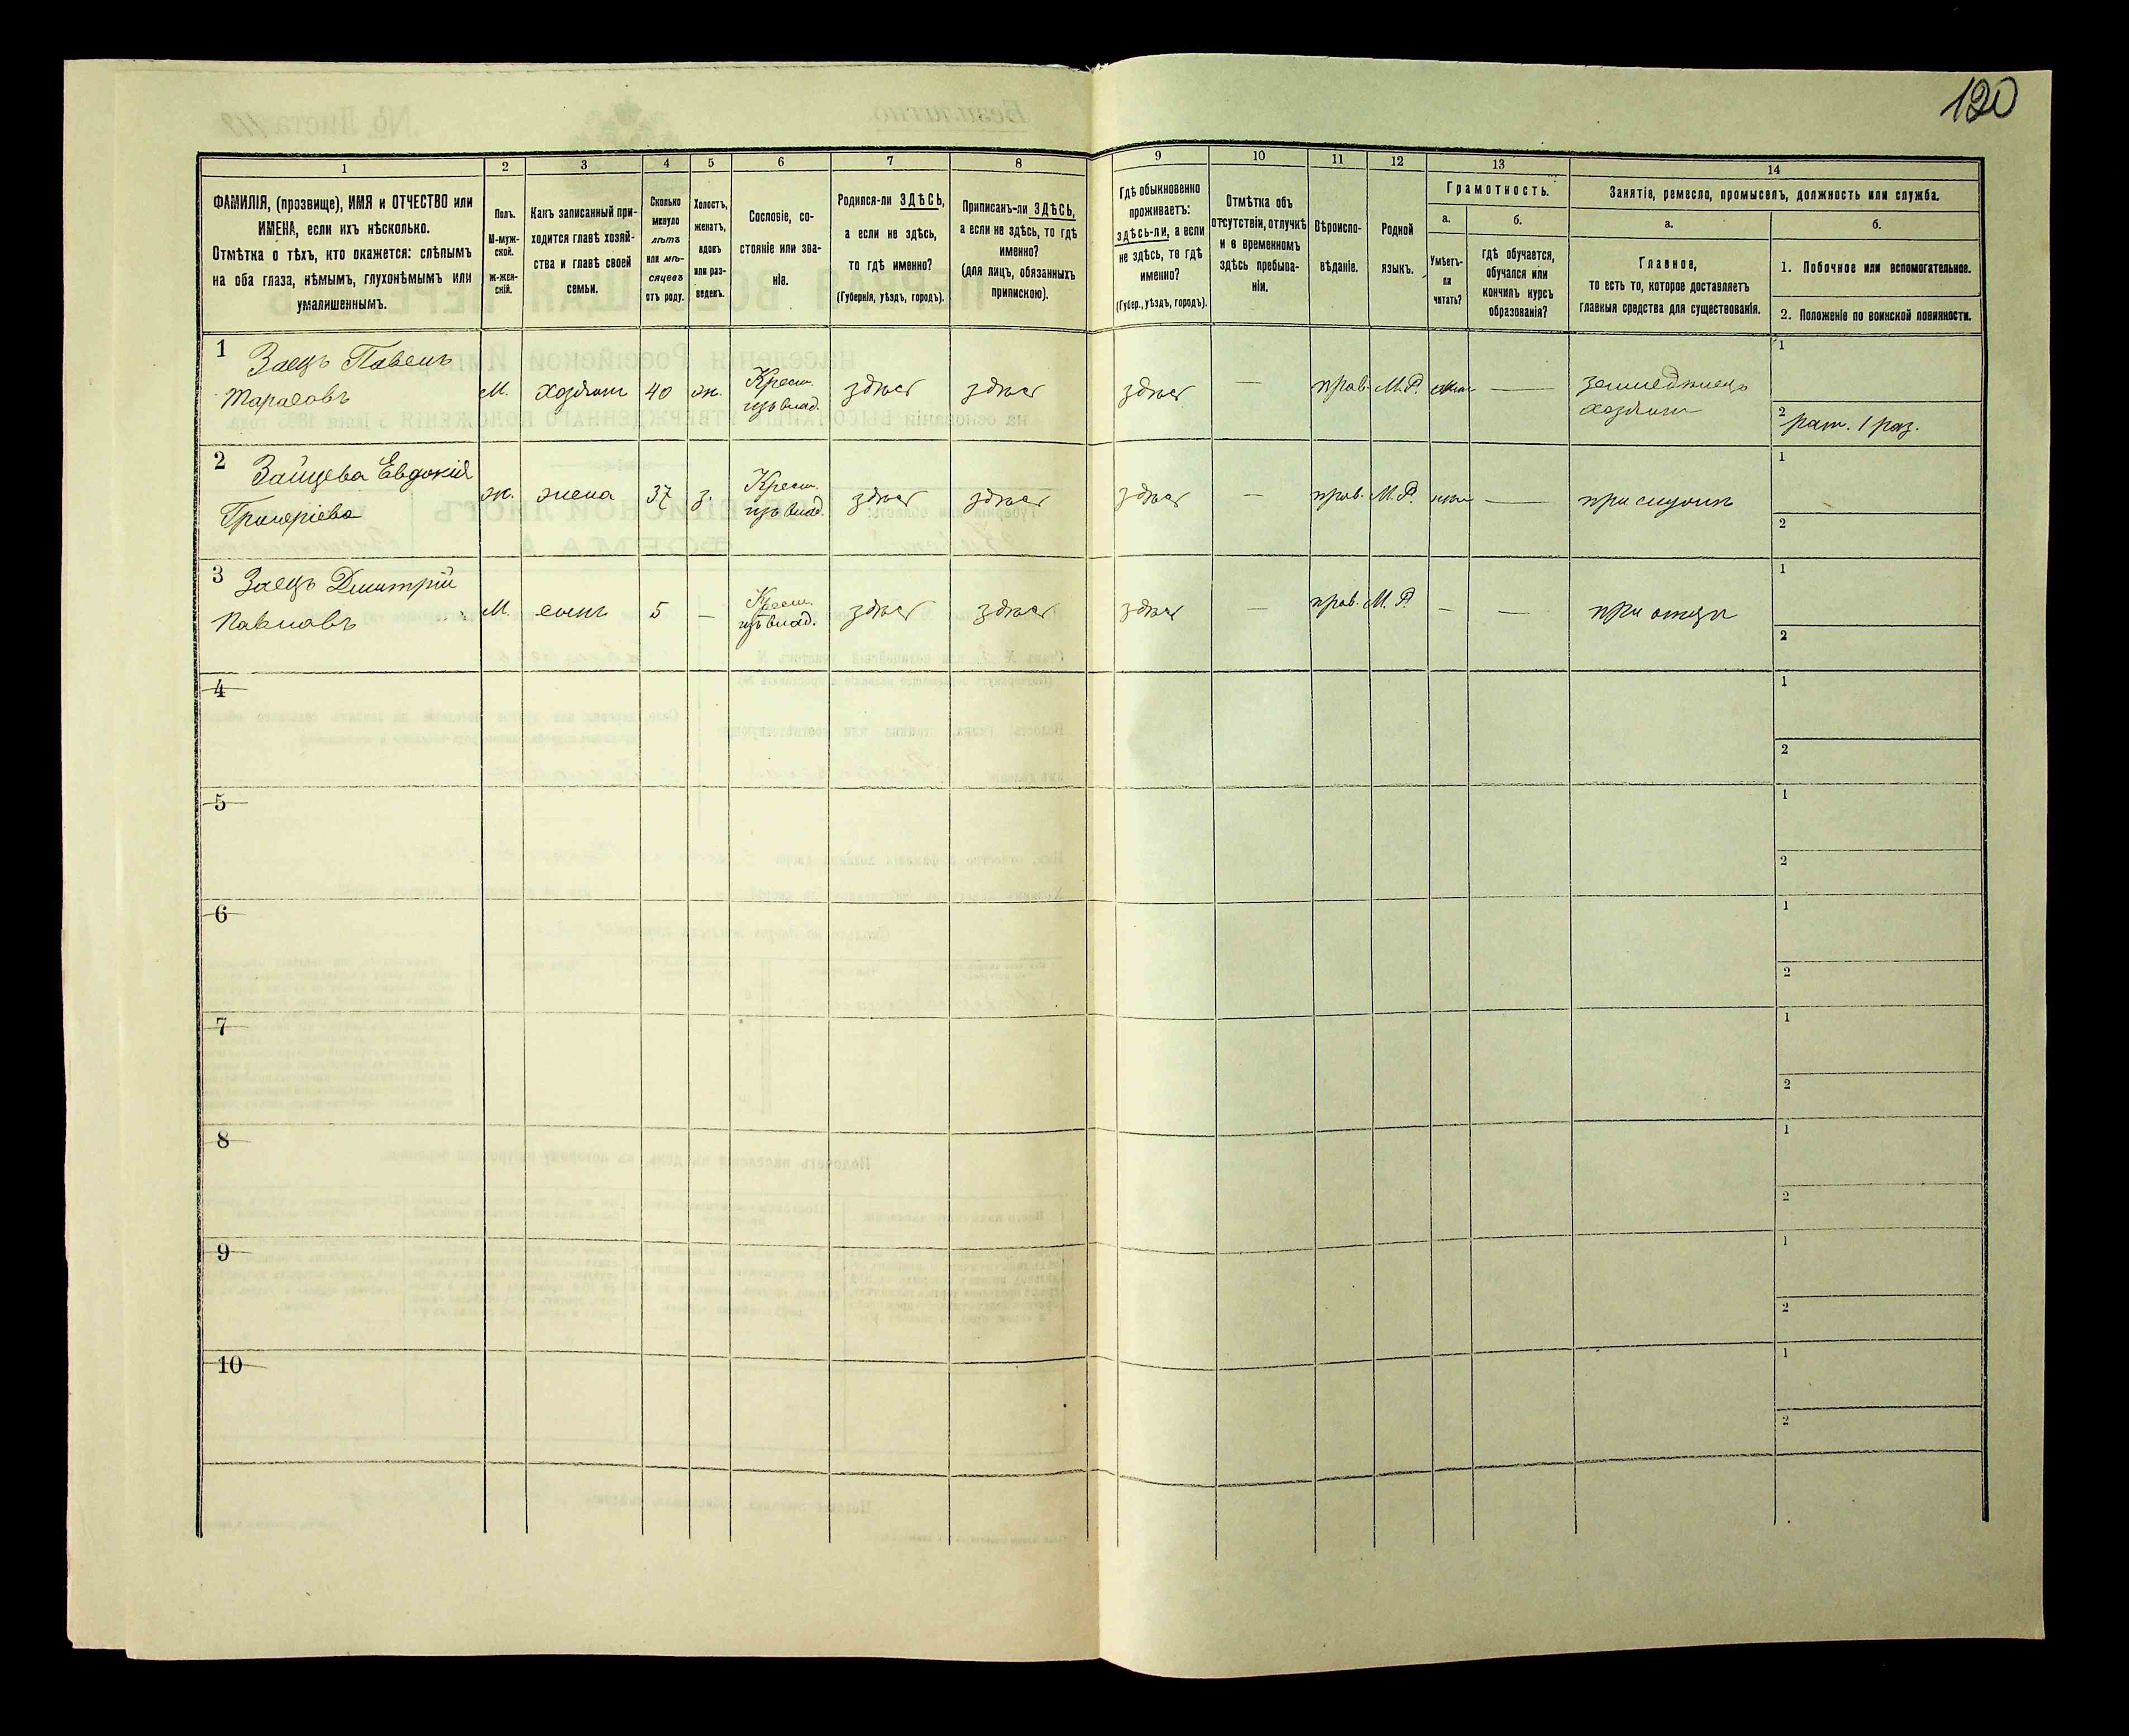 120
1
2
3
4
5
6
7
8
9
10
11
12
13
14
ФАМИЛІЯ, (прозвище), ИМЯ и ОТЧЕСТВО или
ИМЕНА, если ихъ нѣсколько.
Отмѣтка о тѣхъ, кто окажется: слѣпымъ
на оба глаза, нѣмымъ, глухонѣмымъ или
умалишеннымъ.
Полъ.
М-муж-
ской.
Ж-жен-
скій.
Какъ записанный при-
ходится главѣ хозяй-
ства и главѣ своей
семьи.
Сколько
минуло
лѣтъ
или мѣ-
сяцевъ
отъ роду.
Холостъ,
женатъ,
вдовъ
или раз-
веденъ.
Сословіе, со-
стояніе или зва-
ніе.
Родился-ли ЗДѢСЬ,
а если не здѣсь,
то гдѣ именно?
(Губернія, уѣздъ, городъ).
Приписанъ-ли ЗДѢСЬ,
а если не здѣсь, то гдѣ
именно?
(для лицъ, обязанныхъ
припискою).
Гдѣ обыкновенно
проживаетъ:
здѣсь-ли, а если
не здѣсь, то гдѣ
именно?
(Губер., уѣздъ, городъ).
Отмѣтка объ
отсутствіи, отлучкѣ
и о временномъ
здѣсь пребыва-
ніи.
Вѣроиспо-
вѣданіе.
Родной
языкъ.
Грамотность.
а.
б.
Умѣетъ-
ли
читать?
гдѣ обучается,
обучался или
кончилъ курсъ
образованія?
Занятіе, ремесло, промыселъ, должность или служба.
а.
б.
Главное,
то есть то, которое доставляетъ
главныя средства для существованія.
1. Побочное или вспомогательное.
2. Положеніе по воинской повинности.
1 Заецъ Павелъ
Тарасовъ
М.
хозяин
40
ж.
Крест.
изъ влад.
здѣсь
здѣсь
здѣсь
—
прав.
М.Р.
—
земледѣлец
хозяин
1
2 рат. 1 раз.
2 Зайцева Евдокія
Григоріева
ж.
жена
37
з.
Крест.
изъ влад.
здѣсь
здѣсь
здѣсь
—
прав.
М.Р.
—
при мужѣ
1
2
3 Заецъ Дмитрій
Павловъ
М.
сынъ
5
—
Крест.
изъ влад.
здѣсь
здѣсь
здѣсь
—
прав.
М.Р.
—
—
при отцѣ
1
2
4
1
2
5
1
2
6
1
2
7
1
2
8
1
2
9
1
2
10
1
2